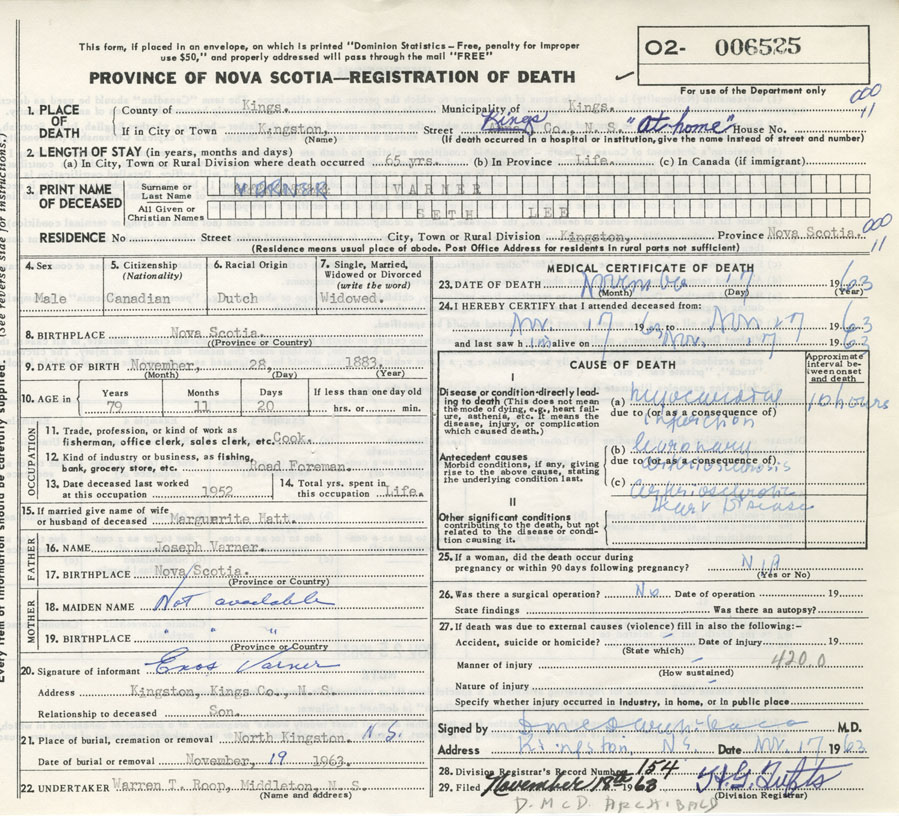 This form, if placed in an envelope, on which is printed "Dominion Statistics – Free, penalty for improper
use $50," and properly addressed will pass through the mail "FREE"
PROVINCE OF NOVA SCOTIA—REGISTRATION OF DEATH
O2- 006525
For use of the Department only
000
11
1. PLACE OF DEATH
County of Kings. Municipality of Kings.
If in City or Town Kingston, (Name) Street Kings Co., N. S. "At home" House No.
(If death occurred in a hospital or institution, give the name instead of street and number)
2. LENGTH OF STAY (in years, months and days)
(a) In City, Town or Rural Division where death occurred 65 yrs. (b) In Province Life. (c) In Canada (if immigrant)
3. PRINT NAME OF DECEASED
Surname or Last Name VARNER
All Given or Christian Names SETH LEE
000
11
RESIDENCE No Street City, Town or Rural Division Kingston, Province Nova Scotia.
(Residence means usual place of abode. Post Office Address for residents in rural parts not sufficient)
4. Sex
Male
5. Citizenship (Nationality)
Canadian
6. Racial Origin
Dutch
7. Single, Married, Widowed or Divorced (write the word)
Widowed.
8. BIRTHPLACE Nova Scotia.
(Province or Country)
9. DATE OF BIRTH November, 28, 1883.
(Month) (Day) (Year)
10. AGE in Years 79 Months 11 Days 20 If less than one day old hrs. or min.
OCCUPATION
11. Trade, profession, or kind of work as fisherman, office clerk, sales clerk, etc. Cook.
12. Kind of industry or business, as fishing, bank, grocery store, etc. Road Foreman.
13. Date deceased last worked at this occupation 1952
14. Total yrs. spent in this occupation Life.
15. If married give name of wife or husband of deceased Marguerite Hatt.
FATHER
16. NAME Joseph Varner.
17. BIRTHPLACE Nova Scotia.
(Province or Country)
MOTHER
18. MAIDEN NAME Not available
19. BIRTHPLACE " " "
(Province or Country
20. Signature of informant Enos Varner
Address Kingston, Kings Co., N. S.
Relationship to deceased Son.
21. Place of burial, cremation or removal North Kingston. N.S.
Date of burial or removal November, 19 1963.
22. UNDERTAKER Warren T. Roop, Middleton, N. S.
(Name and address)
MEDICAL CERTIFICATE OF DEATH
23. DATE OF DEATH November 17 1963
(Month) (Day) (Year)
24. I HEREBY CERTIFY that I attended deceased from:
Nov. 17 1963, to Nov 17 1963
and last saw him alive on Nov. 17 1963
CAUSE OF DEATH
Approximate interval between onset and death
I
Disease or condition directly leading to death (This does not mean the mode of dying, e.g., heart failure, asthenia, etc. It means the disease, injury, or complication which caused death.)
(a) Myocardial Infarction 10 hours
due to (or as a consequence of)
Antecedent causes
Morbid conditions, if any, giving rise to the above cause, stating the underlying condition last.
(b) Coronary
due to (or as a consequence of)
(c) Arteriosclerotic Heart Disease
II
Other significant conditions contributing to the death, but not related to the disease or condition causing it.
25. If a woman, did the death occur during pregnancy or within 90 days following pregnancy? N/A
(Yes or No)
26. Was there a surgical operation? No Date of operation 19
State findings Was there an autopsy?
27. If death was due to external causes (violence) fill in also the following:–
Accident, suicide or homicide? Date of injury 19
(State which)
Manner of injury 420.0
(How sustained)
Nature of injury
Specify whether injury occurred in industry, in home, or in public place
Signed by M.D.
Address Kingston, N.S. Date Nov. 17 1963
28. Division Registrar's Record Number 154
29. Filed November 18th 1963 H G Tufts
(Division Registrar)
D. McD. ARCHIBALD
(See reverse side for instructions.)
Every item of information should be carefully supplied.